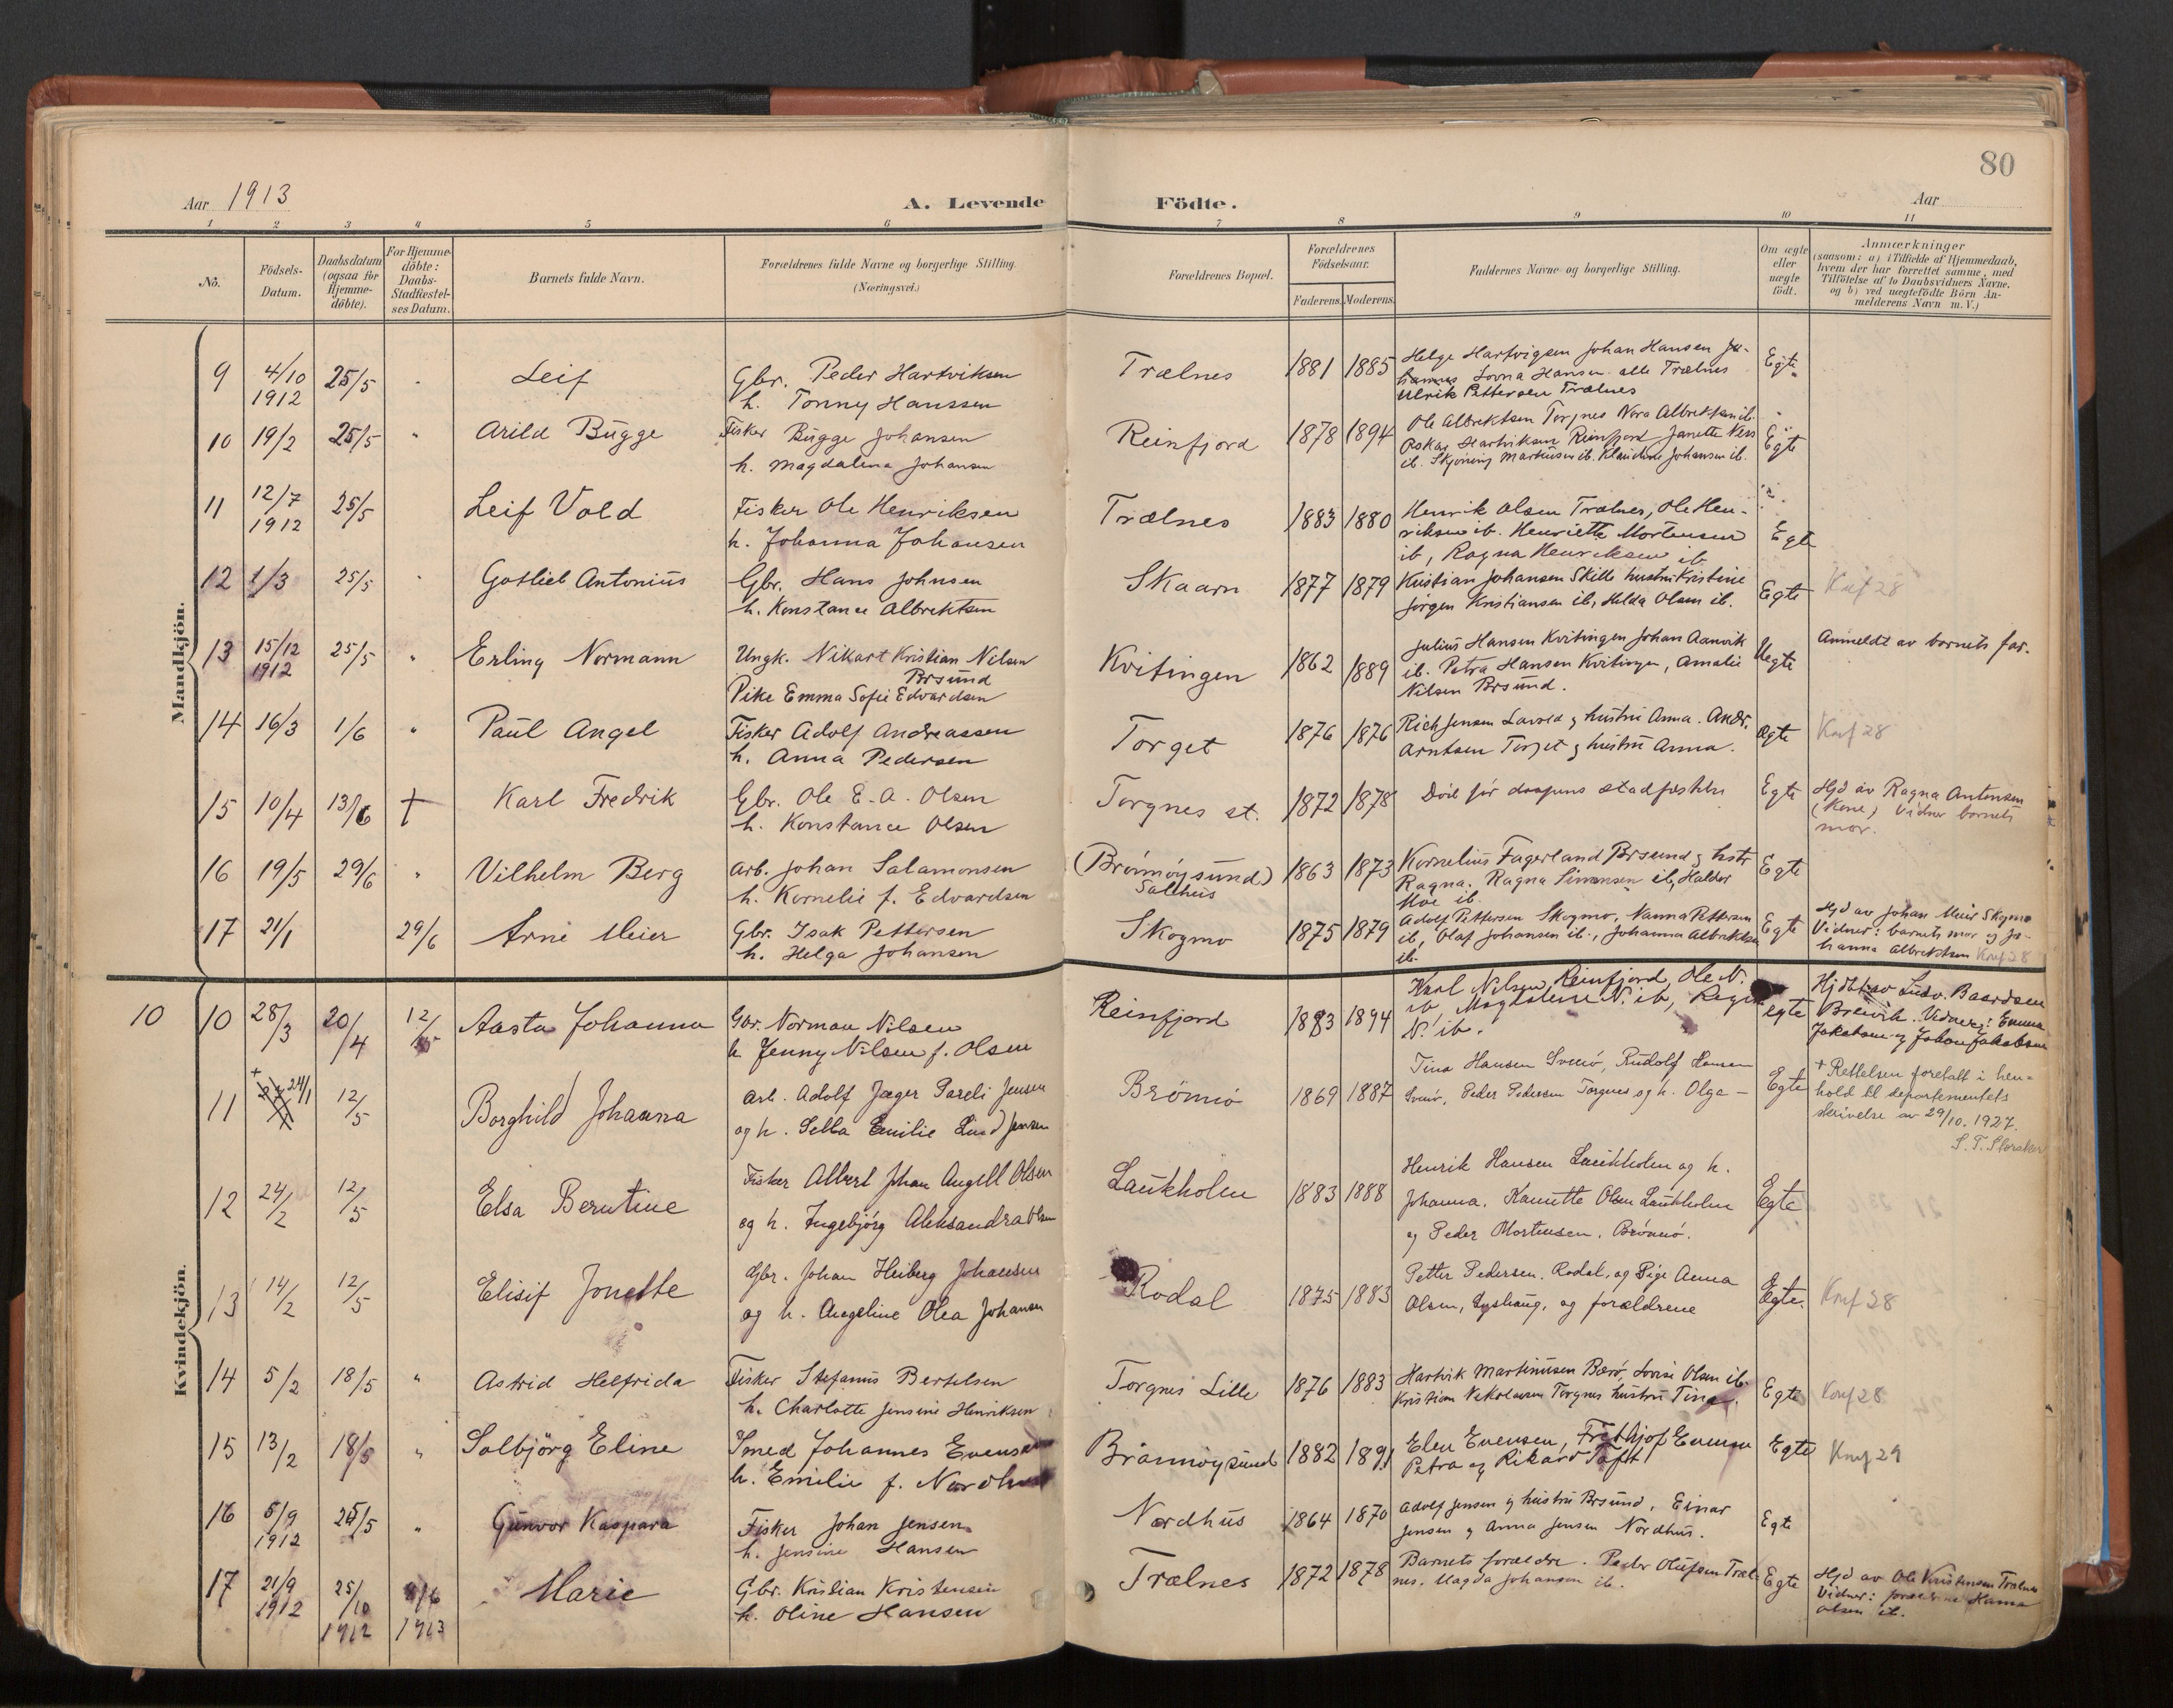 80
Aar 1913
A. Levende Födte.
Aar
1 2 3 4 5 6 7 8 9 10 11
No.
Födsels-Datum.
Daabsdatum (ogsaa for Hjemme-döbte).
For Hjemme-döbte: Daabs-Stadfæstel-ses Datum.
Barnets fulde Navn.
Forældrenes fulde Navne og borgerlige Stilling.
(Næringsvei.)
Forældrenes Bopæl.
Forældrenes Födselsaar.
Faderens. Moderens.
Faddernes Navne og borgerlige Stilling.
Om ægte eller uægte födt.
Anmærkninger
(saasom: a) i Tilfælde af Hjemmedaab, hvem der har forrettet samme, med Tilföielse af to Daabsvidners Navne, og b) ved uægtefödte Börn An-melderens Navn m.V.)
Mandkjön.
9 4/10 1912 25/5 Leif
Gbr. Peder Hartviksen
h. Tonny Hanssen
Trælnes 1881 1885
Helge Hartvigsen Johan Hansen Jo-
hannes Lovna Hansen alle Trælnes
Ulrik Pettersen Trælnes
Egte
10 19/2 25/5 " Arild Bugge
Fisker Bugge Johansen
h. Magdalena Johansen
Reinfjord 1878 1894
Ole Albrektsen Torgnes Nora Albrektsen ib.
Oskar Hartviksen Reinfjord Janette
ib. Skjöning Martinsen ib. Klaudine Johansen ib.
Egte
11 12/7 1912 25/5 Leif Vold
Fisker Ole Henriksen
h. Johanna Johansen
Trælnes 1883 1880
Henrik Olsen Trælnes, Ole Hen-
riksen ib. Henriette Mortensen
ib, Ragna Henriksen ib
Egte
12 1/3 25/5 " Gotlieb Antonius
Gbr. Hans Johnsen
h. Konstance Albrektsen
Skaarn 1877 1879
Kristian Johansen Skille hustru Kristine
Jörgen Kristiansen ib, Helda Olsen ib.
Egte Konf 28
13 15/12 1912 25/5 " Erling Normann
Ungk. Nikart Kristian Nilsen
Brsund
Pike Emma Sofie Edvardsen
Kvitingen 1862 1889
Julius Hansen Kvitingen Johan Aanvik
ib. Petra Hansen Kvitingen, Amalie
Nilsen Brsund.
Uegte Anmeldt av barnets far.
14 16/3 1/6 " Paul Angel
Fisker Adolf Andreassen
h. Anna Pedersen
Torget 1876 1876
Rich Jensen g hustru Anna. Andr.
Arntsen Torget g hustru Anna.
Egte Konf 28
15 10/4 13/6 † Karl Fredrik
Gbr. Ole E. A. Olsen
h. Konstance Olsen
Torgnes st. 1872 1878
Död för daapens stadfæstelse
Egte
Hjd av Ragna Antonsen
(Kone) Vidner barnets
mor.
16 19/5 29/6 " Vilhelm Berg
Arb. Johan Salamonsen
h. Kornelie f. Edvardsen
(Brönnöysund)
Salhus
1863 1873
Kornelius Fagerland Brsund g hstr
Ragna. Ragna Simonsen ib, Haldor
Moe ib.
Egte
17 21/1 29/6 Arne Meier
Gbr. Isak Pettersen
h. Helga Johansen
Skogmo 1875 1879
Adolf Pettersen Skogmo, Nanna Pettersen
ib, Olaf Johansen ib., Johanna Albrektsen
ib.
Egte
Hjd av Johan Meier Skogmo
Vidner: barnets mor og Jo-
hanna Albrektsen Konf 28
Kvindekjön.
10 10 28/3 20/4 12/5 Aasta Johanna
Gbr. Norman Nilsen
h Jenny Nilsen f. Olsen
Reinfjord 1883 1894
Karl Nilsen, Reinfjord, Ole N.
ib, Magdalene N. ib,
N. ib.
egte
Hjdöbt av Ludv. Baardsen
Breivik. Vidner: Emma
Jakobsen og Johan Jakobsen
11 + 24/1 12/5 Borghild Johanna
Arb. Adolf Jæger Pareli Jensen
og h. Selba Emilie Lind Jensen
Brönnö 1869 1887
Tina Hansen Svenö, Rudolf Hansen
Svenö, Peder Pedersen Torgnes og h. Olga –
Egte
+ Rettelsen foretatt i hen-
hold til departementets
skrivelse av 29/10. 1927.
12 24/2 12/5 Elsa Berntine
Fisker Albert Johan Angell Olsen
og h. Ingebjörg Aleksandra Olsen
Laukholm 1883 1888
Henrik Hansen Laukholm og h.
Johanna. Hanette Olsen Laukholm
og Peder Mortensen. Brönnö.
Egte
13 14/2 12/5 Elisif Jonette
Gbr. Johan Heiberg Johansen
og h. Angeline Olea Johansen
Rodal 1875 1883
Petter Pedersen. Rodal, og Pige Anna
Olsen, Lyshaug, og forældrene
Egte. Konf 28
14 5/2 18/5 " Astrid Helfrida
Fisker Stefanus Bertelsen
h. Charlotte Jensine Henriksen
Torgnes Lille 1876 1883
Hartvik Martinusen Bærö, Lovise Olsen ib.
Kristian Nikolaisen Torgnes hustru Tina.
Egte Konf 28
15 13/2 18/5 " Solbjörg Eline
Smed Johannes Evensen
h. Emilie f. Nordhus
Brönnöysund 1882 1891
Elen Evensen, Frithjof Evensen
Petra og Rikard Toft
Egte Konf 29
16 5/9 1912 25/5 " Gunvor Kaspara
Fisker Johan Jensen
h. Jensine Hansen
Nordhus 1864 1870
Adolf Jensen g hustru Brsund, Einar
Jensen g Anna Jensen Nordhus.
Egte
17 21/9 1912 25/10 1912 8/6 1913 Marie
Gbr. Kristian Kristensen
h. Oline Hansen
Trælnes 1872 1878
Barnets forældre. Peder Olufsen Træl-
nes. Magda Johansen ib.
Egte
Hjd av Ole Kristensen Trælnes
Vidner: forældrene Hanna
Olsen ib.